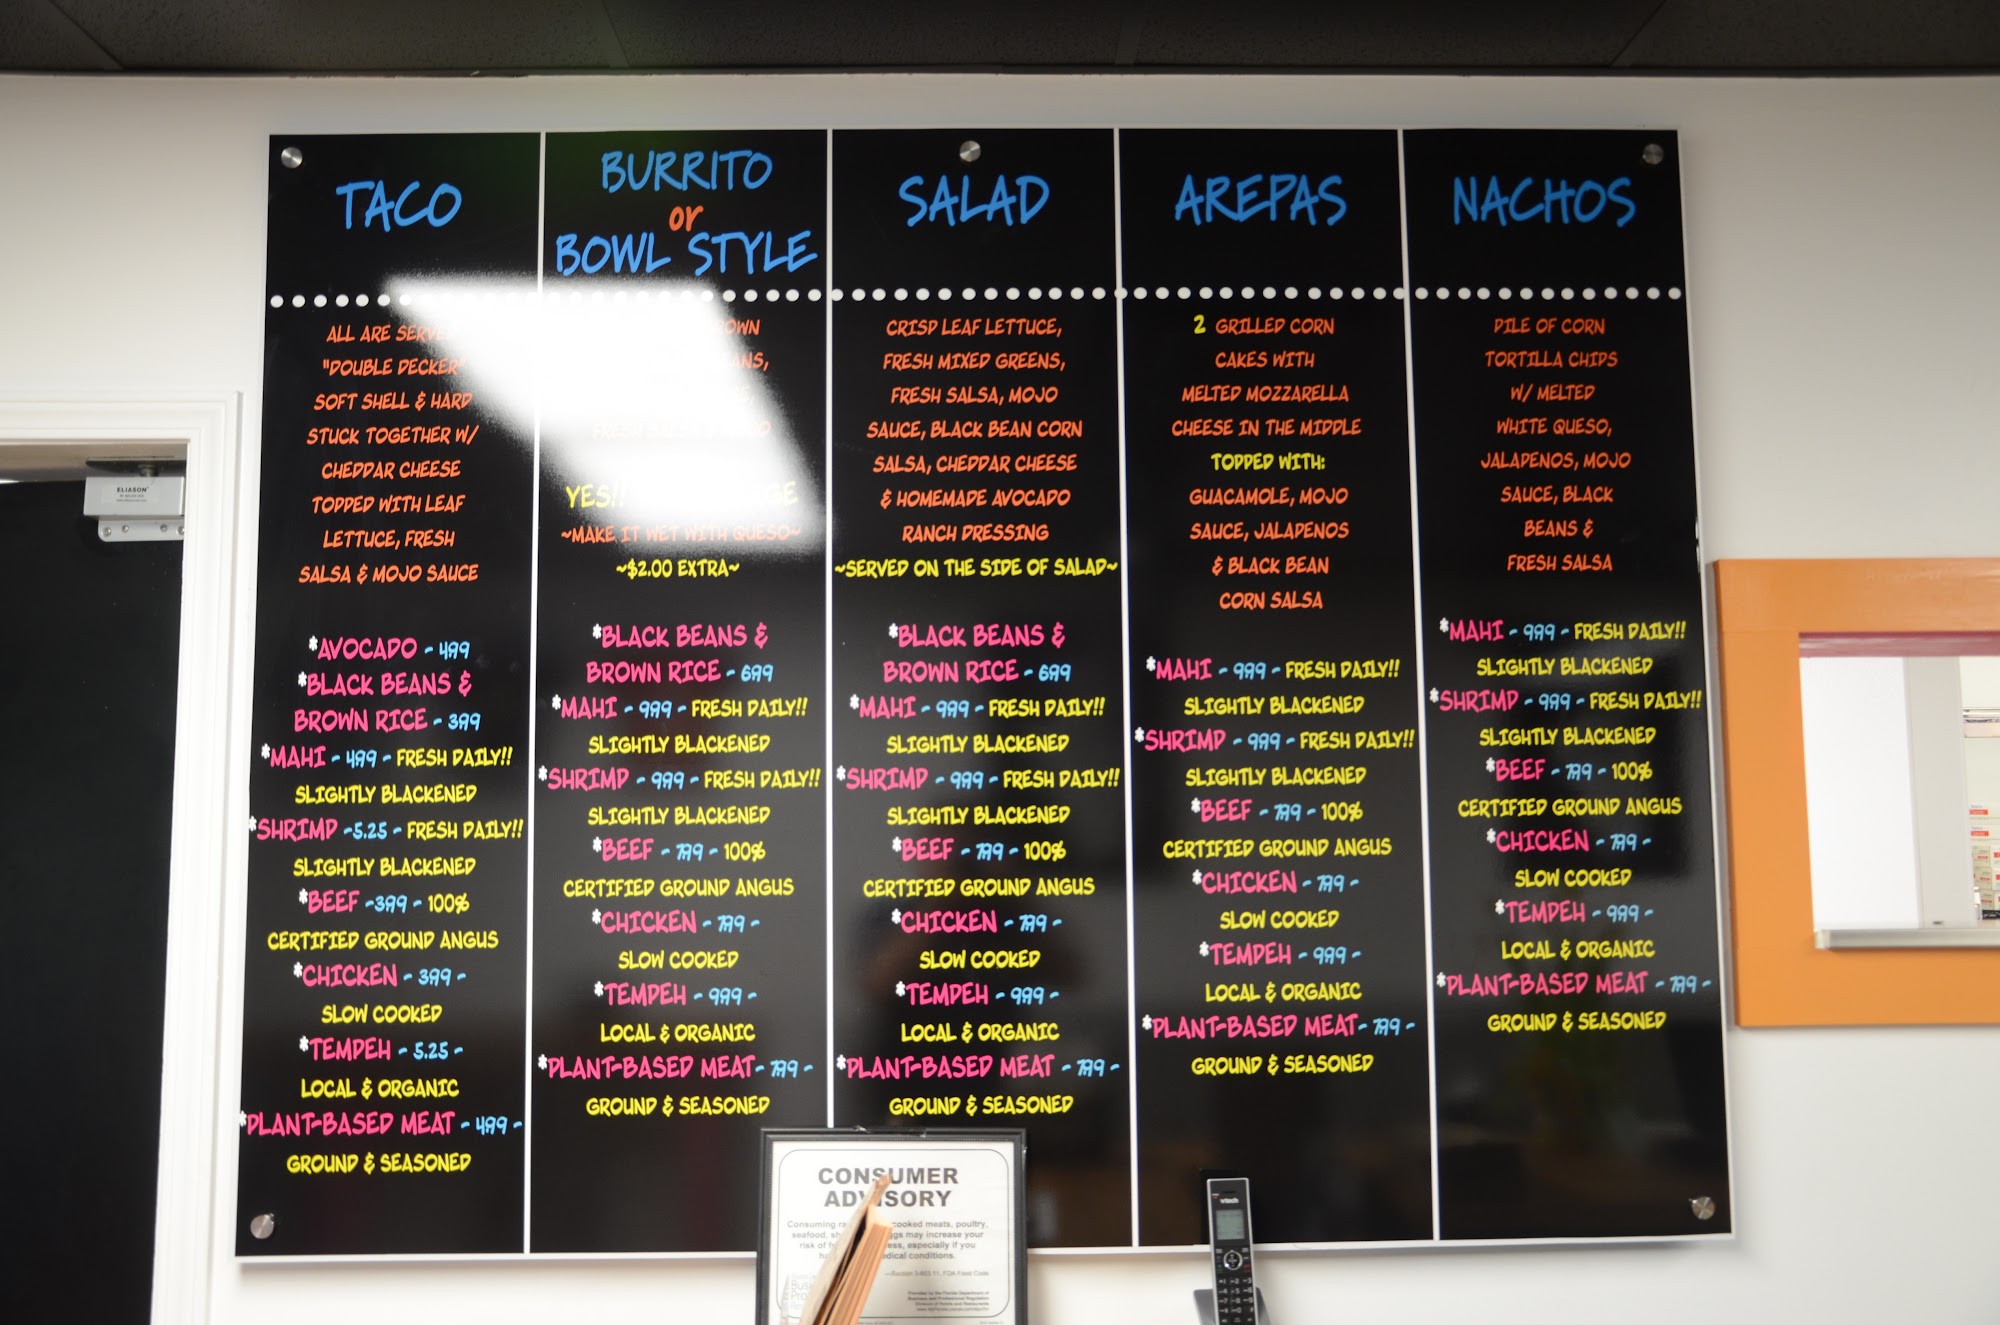 TACO
ALL ARE SERVE
"DOUBLE DECKER"
SOFT SHELL & HARD
STUCK TOGETHER W/
CHEDDAR CHEESE
TOPPED WITH LEAF
LETTUCE, FRESH
SALSA & MOJO SAUCE
*AVOCADO - 499
*BLACK BEANS &
BROWN RICE - 399
*MAHI - 499 - FRESH DAILY!!
SLIGHTLY BLACKENED
*SHRIMP -5.25 - FRESH DAILY!!
SLIGHTLY BLACKENED
*BEEF -399 - 100%
CERTIFIED GROUND ANGUS
*CHICKEN - 399 -
SLOW COOKED
*TEMPEH - 5.25 -
LOCAL & ORGANIC
*PLANT-BASED MEAT - 499 -
GROUND & SEASONED
BURRITO
or
BOWL STYLE
FRESH SALSA
YES!!
~MAKE IT WET WITH QUESO~
~$2.00 EXTRA~
*BLACK BEANS &
BROWN RICE - 699
*MAHI - 999 - FRESH DAILY!!
SLIGHTLY BLACKENED
*SHRIMP - 999 - FRESH DAILY!!
SLIGHTLY BLACKENED
*BEEF - 799 - 100%
CERTIFIED GROUND ANGUS
*CHICKEN - 799 -
SLOW COOKED
*TEMPEH - 999 -
LOCAL & ORGANIC
*PLANT-BASED MEAT- 799 -
GROUND & SEASONED
SALAD
CRISP LEAF LETTUCE,
FRESH MIXED GREENS,
FRESH SALSA, MOJO
SAUCE, BLACK BEAN CORN
SALSA, CHEDDAR CHEESE
& HOMEMADE AVOCADO
RANCH DRESSING
~SERVED ON THE SIDE OF SALAD~
*BLACK BEANS &
BROWN RICE - 699
*MAHI - 999 - FRESH DAILY!!
SLIGHTLY BLACKENED
*SHRIMP - 999 - FRESH DAILY!!
SLIGHTLY BLACKENED
*BEEF - 799 - 100%
CERTIFIED GROUND ANGUS
*CHICKEN - 799 -
SLOW COOKED
*TEMPEH - 999 -
LOCAL & ORGANIC
*PLANT-BASED MEAT - 799 -
GROUND & SEASONED
AREPAS
2 GRILLED CORN
CAKES WITH
MELTED MOZZARELLA
CHEESE IN THE MIDDLE
TOPPED WITH:
GUACAMOLE, MOJO
SAUCE, JALAPENOS
& BLACK BEAN
CORN SALSA
*MAHI - 999 - FRESH DAILY!!
SLIGHTLY BLACKENED
*SHRIMP - 999 - FRESH DAILY!!
SLIGHTLY BLACKENED
*BEEF - 799 - 100%
CERTIFIED GROUND ANGUS
*CHICKEN - 799 -
SLOW COOKED
*TEMPEH - 999 -
LOCAL & ORGANIC
*PLANT-BASED MEAT- 799 -
GROUND & SEASONED
NACHOS
PILE OF CORN
TORTILLA CHIPS
W/ MELTED
WHITE QUESO,
JALAPENOS, MOJO
SAUCE, BLACK
BEANS &
FRESH SALSA
*MAHI - 999 - FRESH DAILY!!
SLIGHTLY BLACKENED
*SHRIMP - 999 - FRESH DAILY!!
SLIGHTLY BLACKENED
*BEEF - 799 - 100%
CERTIFIED GROUND ANGUS
*CHICKEN - 799 -
SLOW COOKED
*TEMPEH - 999 -
LOCAL & ORGANIC
*PLANT-BASED MEAT - 799 -
GROUND & SEASONED
ELIASON
CONSUMER
ADVISORY
Consuming cooked meats, poultry,
seafood, may increase your
risk of especially if you
conditions.
vtech